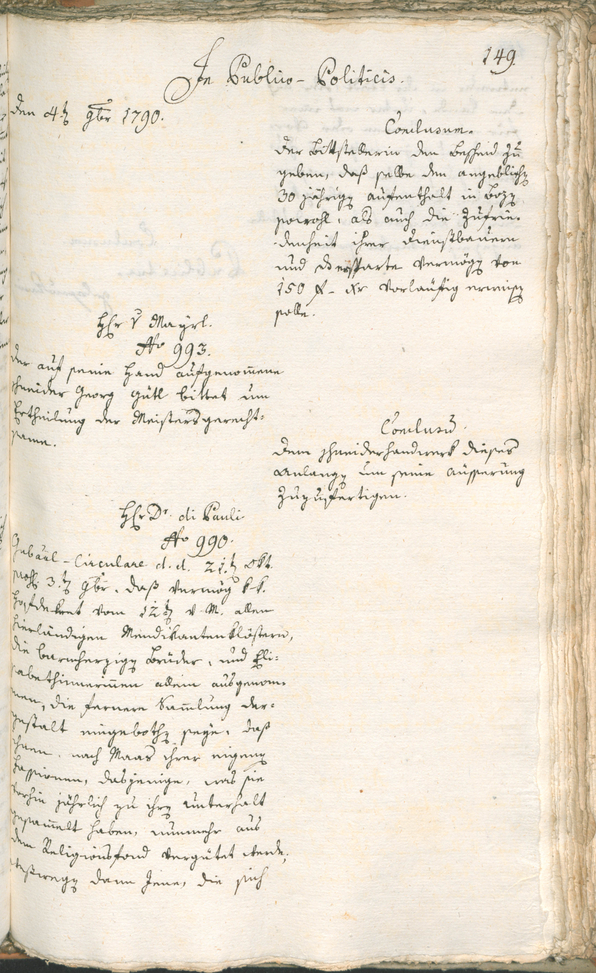 149.
In Publico-Politicis.
den 4t 9br 1790.
Conclusum.
der Bittstellerin den Bescheid zu
geben, daß selbe den angeblich
30 jährig aufenthalt in Boz
sowohl, als auch die Zufrie-
denheit ihrer Dienstbauern
und dersparte vermög von
150 f. vorläufig erweis
solle.
H v Mayrl.
No 993.
der auf seine Hand aufgenommene
schneider Georg Gütl bittet um
Ertheilung der Meistersgerecht-
same.
Conclusum.
dem schneiderhandwerk dieses
Anlang um seine äusserung
zuzufertigen.
H Dr. di Pauli
No 990.
Gubernl-Circulare d. d. 21t Okt.
3.t 9br, daß vermög k. k.
Hofdekret vom 12t v. M. allen
hierländigen Mendikantenklöstern,
die barmherzig Brüder, und Eli-
sabethinerinnen allein ausgenom-
men, die fernere Sammlung der-
gestalt eingeboth seye, daß
ihnen nach Maas ihrer eigen
Fassionen, dasjenige, was sie
vorhin jährlich zu ihr unterhalt
gesammelt haben, nunmehr aus
dem Religionsfond vergütet werde,
weßweg dann Jene, die sich